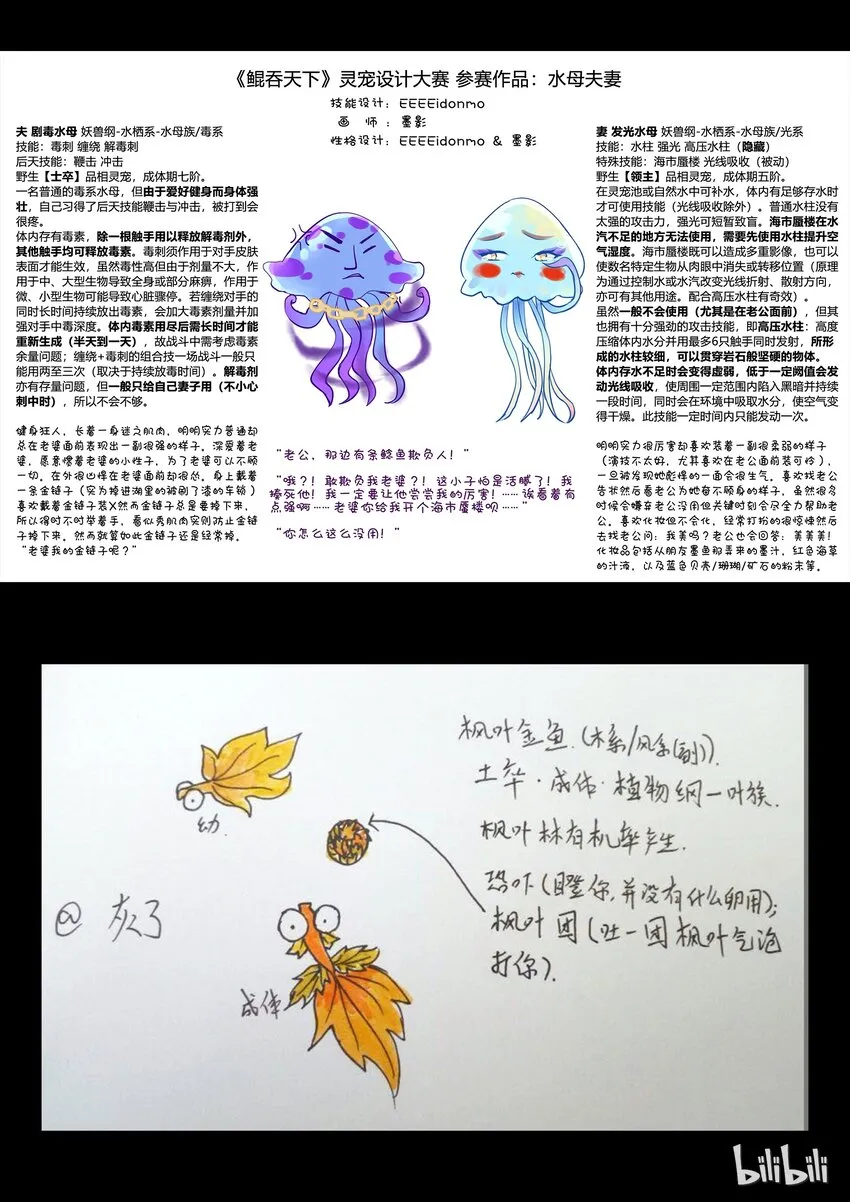 《鲲吞天下》灵宠设计大赛 参赛作品：水母夫妻
技能设计：EEEEidonmo
画 师：墨影
性格设计：EEEEidonmo & 墨影
夫 剧毒水母 妖兽纲-水栖系-水母族/毒系
技能：毒刺 缠绕 解毒刺
后天技能：鞭击 冲击
野生【士卒】品相灵宠，成体期七阶。
一名普通的毒系水母，但由于爱好健身而身体强
壮，自己习得了后天技能鞭击与冲击，被打到会
很疼。
体内存有毒素，除一根触手用以释放解毒剂外，
其他触手均可释放毒素。毒刺须作用于对手皮肤
表面才能生效，虽然毒性高但由于剂量不大，作
用于中、大型生物导致全身或部分麻痹，作用于
微、小型生物可能导致心脏骤停。若缠绕对手的
同时长时间持续放出毒素，会加大毒素剂量并加
强对手中毒深度。体内毒素用尽后需长时间才能
重新生成（半天到一天），故战斗中需考虑毒素
余量问题；缠绕+毒刺的组合技一场战斗一般只
能用两至三次（取决于持续放毒时间）。解毒剂
亦有存量问题，但一般只给自己妻子用（不小心
刺中时），所以不会不够。
健身狂人，长着一身迷之肌肉，明明实力普通却
总在老婆面前表现出一副很强的样子。深爱着老
婆，愿意惯着老婆的小性子，为了老婆可以不顾
一切。在外很凶悍在老婆面前却很怂。身上戴着
一条金链子（实为掉进湖里的被刷了漆的车锁）
喜欢戴着金链子装X然而金链子总是要掉下来，
所以得时不时举着手，看似秀肌肉实则防止金链
子掉下来。然而就算如此金链子还是经常掉。
“老婆我的金链子呢？”
“老公，那边有条鲶鱼欺负人！”
“哦？！敢欺负我老婆？！这小子怕是活腻了！我
揍死他！我一定要让他尝尝我的厉害！……诶看着有
点强啊……老婆你给我开个海市蜃楼呗……”
“你怎么这么没用！”
妻 发光水母 妖兽纲-水栖系-水母族/光系
技能：水柱 强光 高压水柱（隐藏）
特殊技能：海市蜃楼 光线吸收（被动）
野生【领主】品相灵宠，成体期五阶。
在灵宠池或自然水中可补水，体内有足够存水时
才可使用技能（光线吸收除外）。普通水柱没有
太强的攻击力，强光可短暂致盲。海市蜃楼在水
汽不足的地方无法使用，需要先使用水柱提升空
气湿度。海市蜃楼既可以造成多重影像，也可以
使数名特定生物从肉眼中消失或转移位置（原理
为通过控制水或水汽改变光线折射、散射方向，
亦可有其他用途。配合高压水柱有奇效）。
虽然一般不会使用（尤其是在老公面前），但其
也拥有十分强劲的攻击技能，即高压水柱：高度
压缩体内水分并用最多6只触手同时发射，所形
成的水柱较细，可以贯穿岩石般坚硬的物体。
体内存水不足时会变得虚弱，低于一定阈值会发
动光线吸收，使周围一定范围内陷入黑暗并持续
一段时间，同时会在环境中吸取水分，使空气变
得干燥。此技能一定时间内只能发动一次。
明明实力很厉害却喜欢装着一副很柔弱的样子
（演技不太好，尤其喜欢在老公面前装可怜），
一旦被发现她彪悍的一面会很生气。喜欢找老公
告状然后看老公为她奋不顾身的样子，虽然很多
时候会嫌弃老公没用但关键时刻会尽全力帮助老
公。喜欢化妆但不会化，经常打扮的很惊悚然后
去找老公问：我美吗？老公也会回答：美美美！
化妆品包括从朋友墨鱼那弄来的墨汁，红色海草
的汁液，以及蓝色贝壳/珊瑚/矿石的粉末等。
枫叶金鱼.（木系/风系(副)）.
士卒·成体·植物纲一叶族.
枫叶林有机率产生.
恐吓（瞪你,并没有什么卵用);
枫叶团（吐一团枫叶气泡
打你）.
幼.
@ 灰了
成体
bilibili